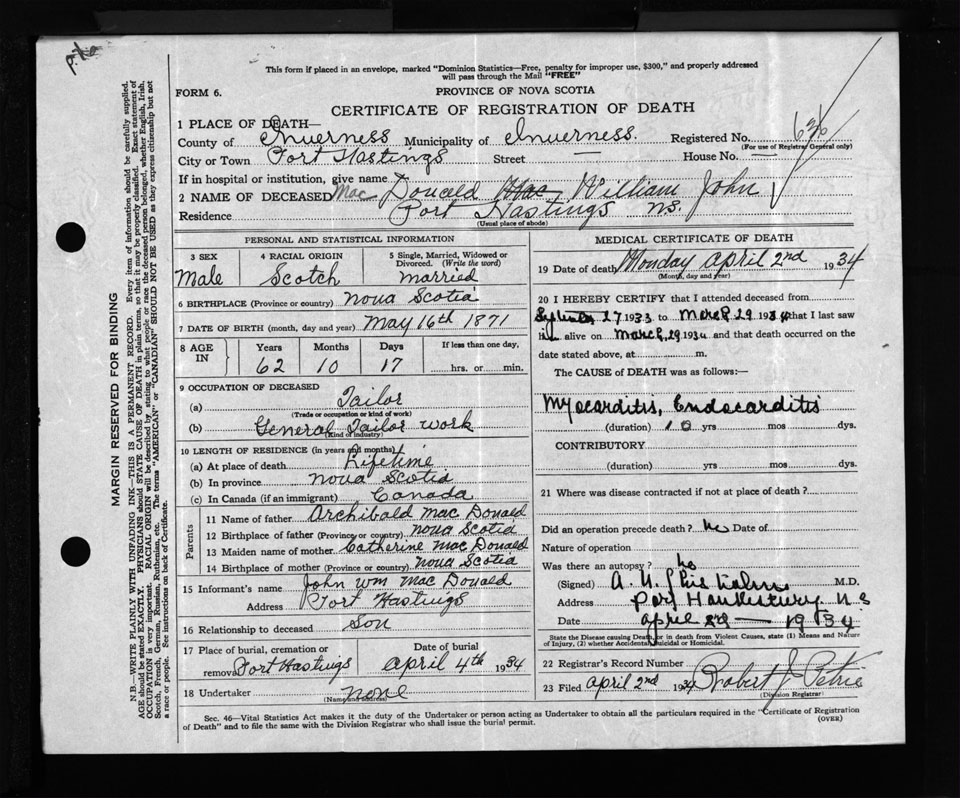 This form if placed in an envelope, marked "Dominion Statistics—Free, penalty for improper use, $300," and properly addressed
will pass through the Mail "FREE"
FORM 6.
PROVINCE OF NOVA SCOTIA
CERTIFICATE OF REGISTRATION OF DEATH
1 PLACE OF DEATH—
County of Inverness Municipality of Inverness. Registered No.
(For use of Registrar General only)
City or Town Port Hastings Street — House No. —
If in hospital or institution, give name
2 NAME OF DECEASED Mac Donald Mac, William John
Residence Port Hastings N.S.
(Usual place of abode)
PERSONAL AND STATISTICAL INFORMATION
3 SEX 4 RACIAL ORIGIN 5 Single, Married, Widowed or
Divorced. (Write the word)
Male Scotch married
6 BIRTHPLACE (Province or country) Nova Scotia
7 DATE OF BIRTH (month, day and year) May 16th 1871
8 AGE IN Years Months Days If less than one day,
62 10 17 hrs. or min.
9 OCCUPATION OF DECEASED
(a) Tailor
(Trade or occupation or kind of work)
(b) General Tailor work
(Kind of industry)
10 LENGTH OF RESIDENCE (in years and months)
(a) At place of death Lifetime
(b) In province Nova Scotia
(c) In Canada (if an immigrant) Canada
Parents
11 Name of father Archibald Mac Donald
12 Birthplace of father (Province or country) Nova Scotia
13 Maiden name of mother Catherine Mac Donald
14 Birthplace of mother (Province or country) Nova Scotia
15 Informant's name John Wm Mac Donald
Address Port Hastings
16 Relationship to deceased Son
17 Place of burial, cremation or Date of burial
removal Port Hastings April 4th 1934
18 Undertaker none
(Name and address)
MEDICAL CERTIFICATE OF DEATH
19 Date of death Monday April 2nd 1934
(Month, day and year)
20 I HEREBY CERTIFY that I attended deceased from
September 27 1933 to March 29 1934 that I last saw
him alive on March, 29 1934 and that death occurred on the
date stated above, at m.
The CAUSE of DEATH was as follows:—
Myocarditis, Endocarditis
(duration) 10 yrs mos dys.
CONTRIBUTORY
(duration) yrs mos dys.
21 Where was disease contracted if not at place of death?
Did an operation precede death? No Date of
Nature of operation
Was there an autopsy? No
(Signed) M.D.
Address Port Hawkesbury N S
Date April 2nd — 1934
State the Disease causing Death, or in death from Violent Causes, state (1) Means and Nature
of Injury, (2) whether Accidental, Suicidal or Homicidal.
22 Registrar's Record Number
23 Filed April 2nd 1934 Robert J. Petrie
(Division Registrar)
Sec. 46—Vital Statistics Act makes it the duty of the Undertaker or person acting as Undertaker to obtain all the particulars required in the "Certificate of Registration
of Death" and to file the same with the Division Registrar who shall issue the burial permit.
(OVER)
MARGIN RESERVED FOR BINDING
N.B.—WRITE PLAINLY WITH UNFADING INK—THIS IS A PERMANENT RECORD. Every item of information should be carefully supplied.
AGE should be stated EXACTLY. PHYSICIANS should STATE CAUSE OF DEATH in plain terms, so that it may be properly classified. Exact statement of
OCCUPATION is very important. RACIAL ORIGIN will be described by stating to what people or race the deceased person belonged, whether English, Irish,
Scotch, French, German, Russian, Ruthenian, etc. The terms "AMERICAN" or "CANADIAN" SHOULD NOT BE USED as they express citizenship but not
a race or people. See instructions on back of Certificate.